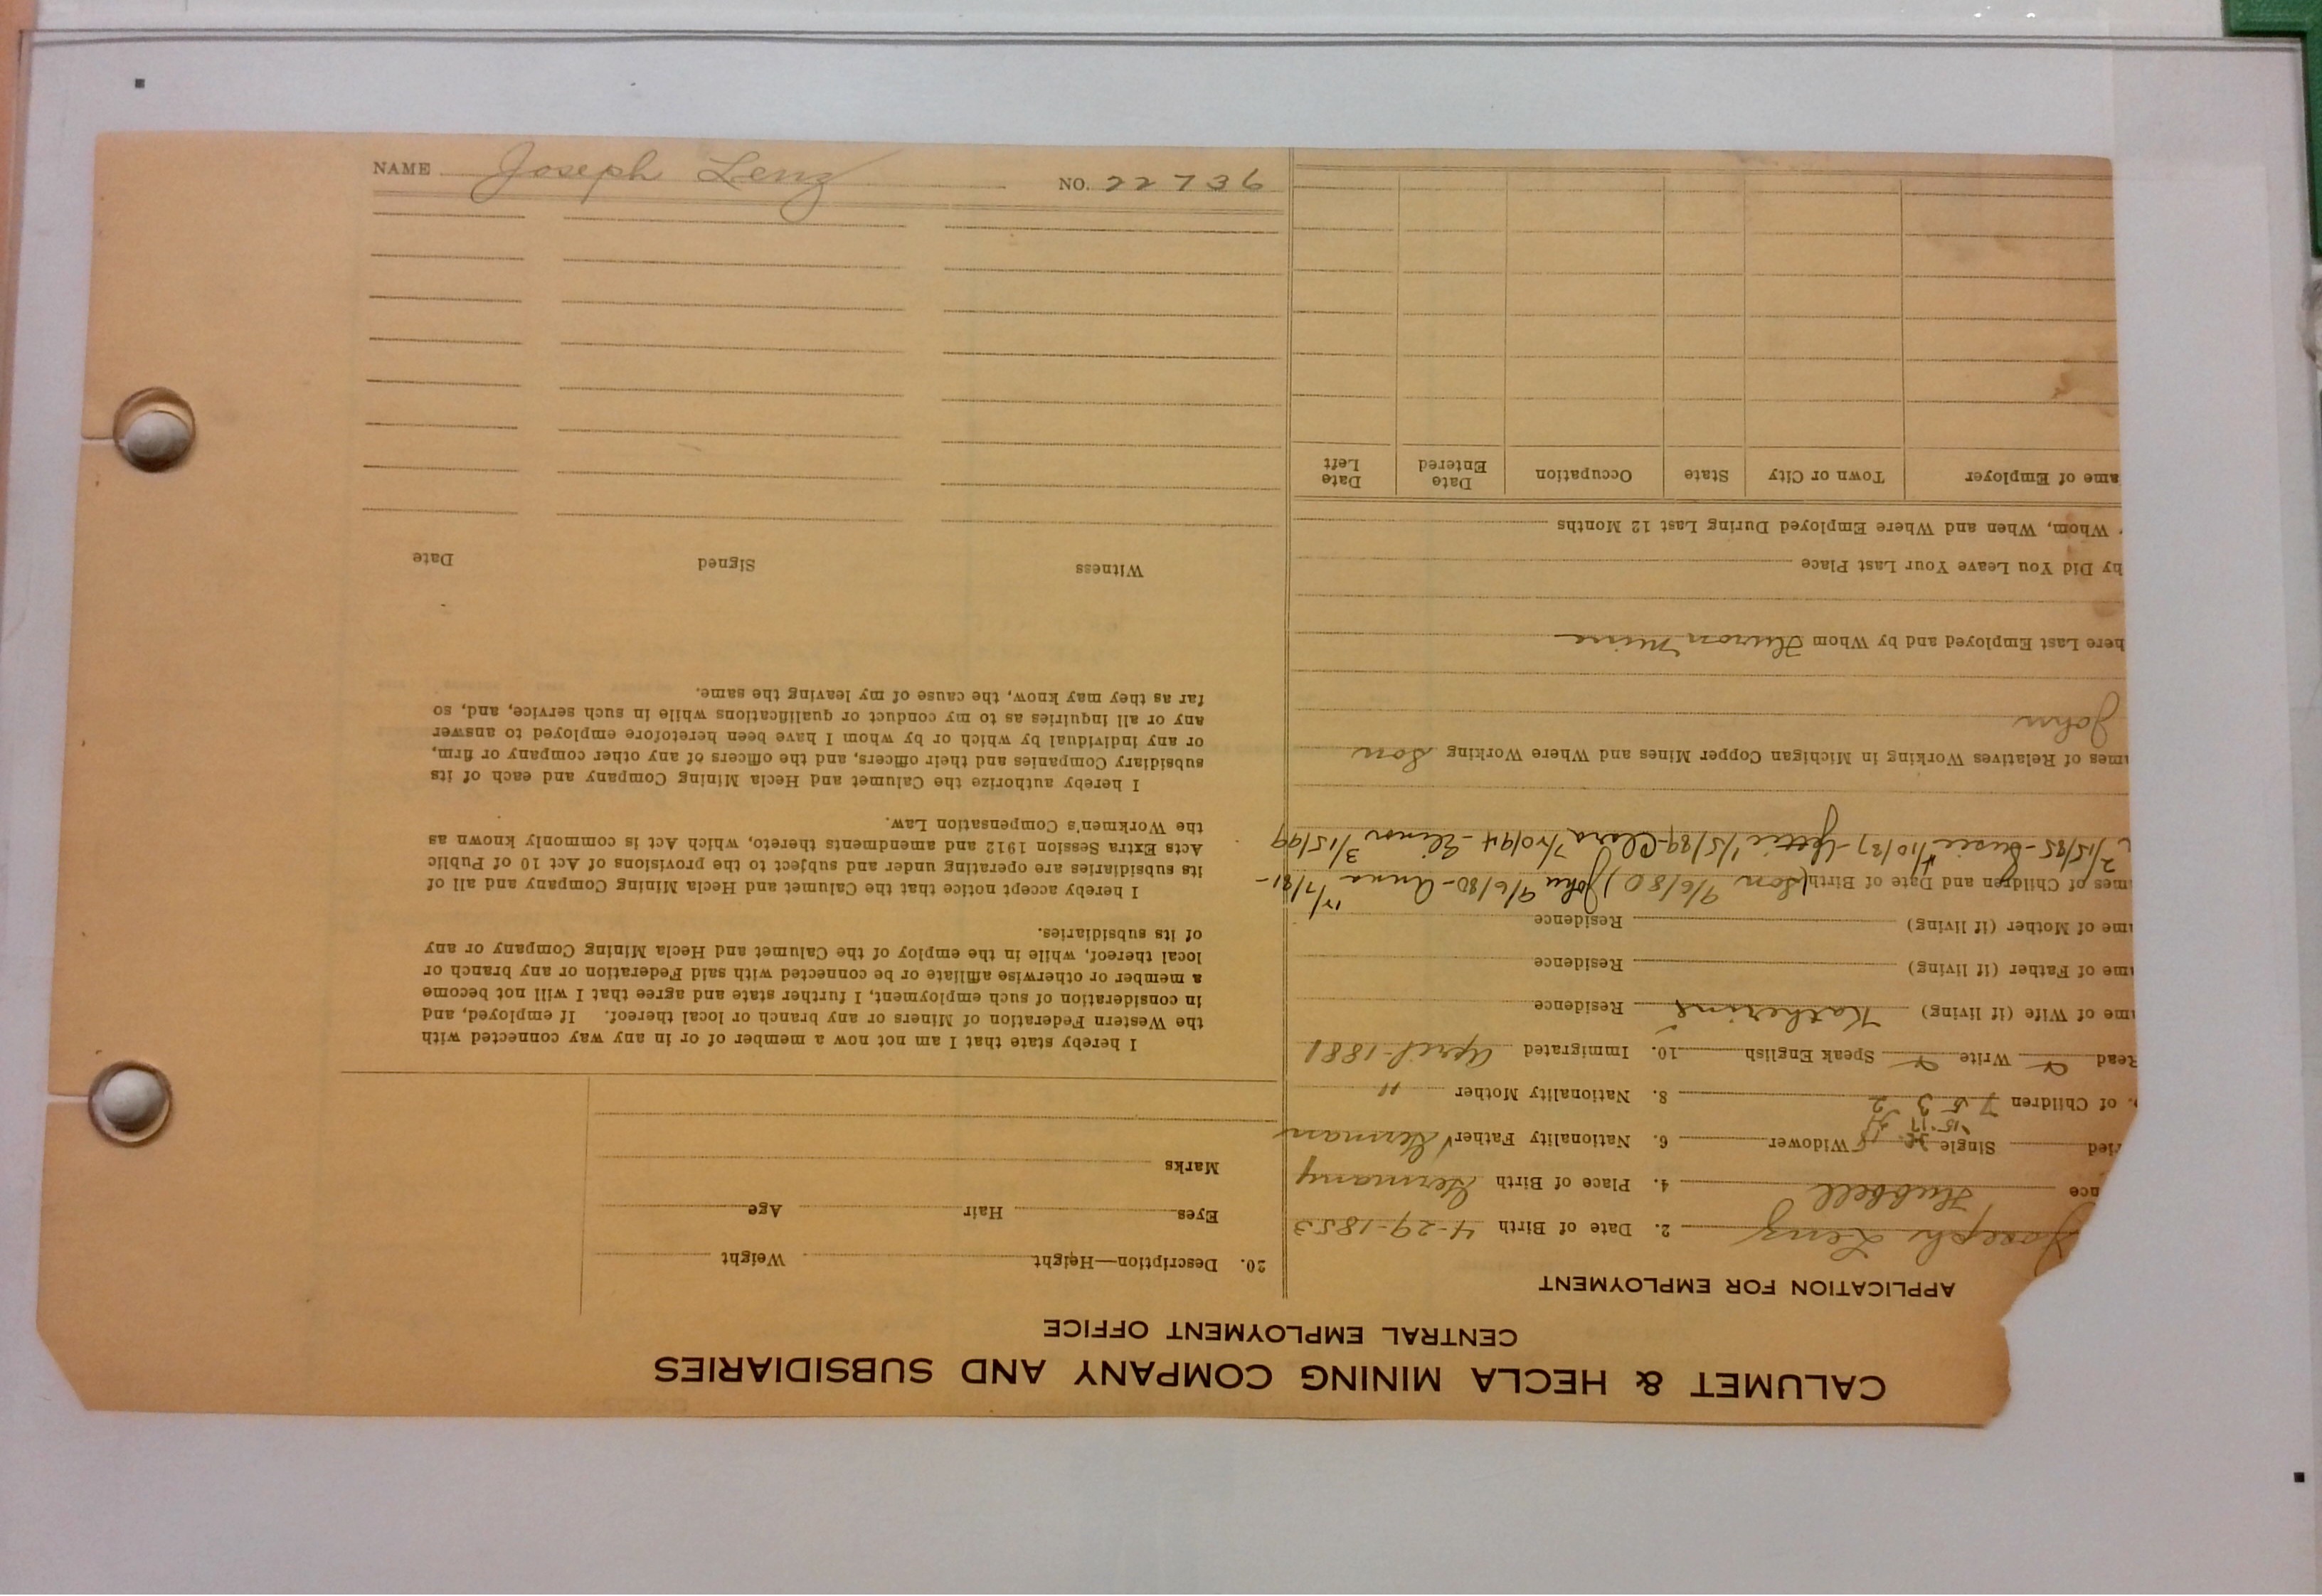 NAME Joseph Lenz NO. 22736
CALUMET & HECLA MINING COMPANY AND SUBSIDIARIES
CENTRAL EMPLOYMENT OFFICE
APPLICATION FOR EMPLOYMENT
Joseph Lenz 2. Date of Birth 4-29-1853
nce Hubbell 4. Place of Birth Germany
ried Single Widower 6. Nationality Father German
of Children 7 5 3 2 8. Nationality Mother "
Read Write Speak English 10. Immigrated April-1881
ame of Wife (if living) Katherine Residence
ame of Father (if living) Residence
ame of Mother (if living) Residence
mes of Children and Date of Birth (Son 9/6/80) John 9/6/80- Anna 17/81-
2/15/85- Susie 4/10/87- 1/5/89- Clara 7/20/94- Elinor 3/15/99
ames of Relatives Working in Michigan Copper Mines and Where Working Son
John
here Last Employed and by Whom Huron Mine
hy Did You Leave Your Last Place
Whom, When and Where Employed During Last 12 Months
ame of Employer Town or City State Occupation Date Entered Date Left
20. Description—Height Weight
Eyes Hair Age
Marks
I hereby state that I am not now a member of or in any way connected with
the Western Federation of Miners or any branch or local thereof. If employed, and
in consideration of such employment, I further state and agree that I will not become
a member or otherwise affiliate or be connected with said Federation or any branch or
local thereof, while in the employ of the Calumet and Hecla Mining Company or any
of its subsidiaries.
I hereby accept notice that the Calumet and Hecla Mining Company and all of
its subsidiaries are operating under and subject to the provisions of Act 10 of Public
Acts Extra Session 1912 and amendments thereto, which Act is commonly known as
the Workmen's Compensation Law.
I hereby authorize the Calumet and Hecla Mining Company and each of its
subsidiary Companies and their officers, and the officers of any other company or firm,
or any individual by which or by whom I have been heretofore employed to answer
any or all inquiries as to my conduct or qualifications while in such service, and, so
far as they may know, the cause of my leaving the same.
Witness Signed Date